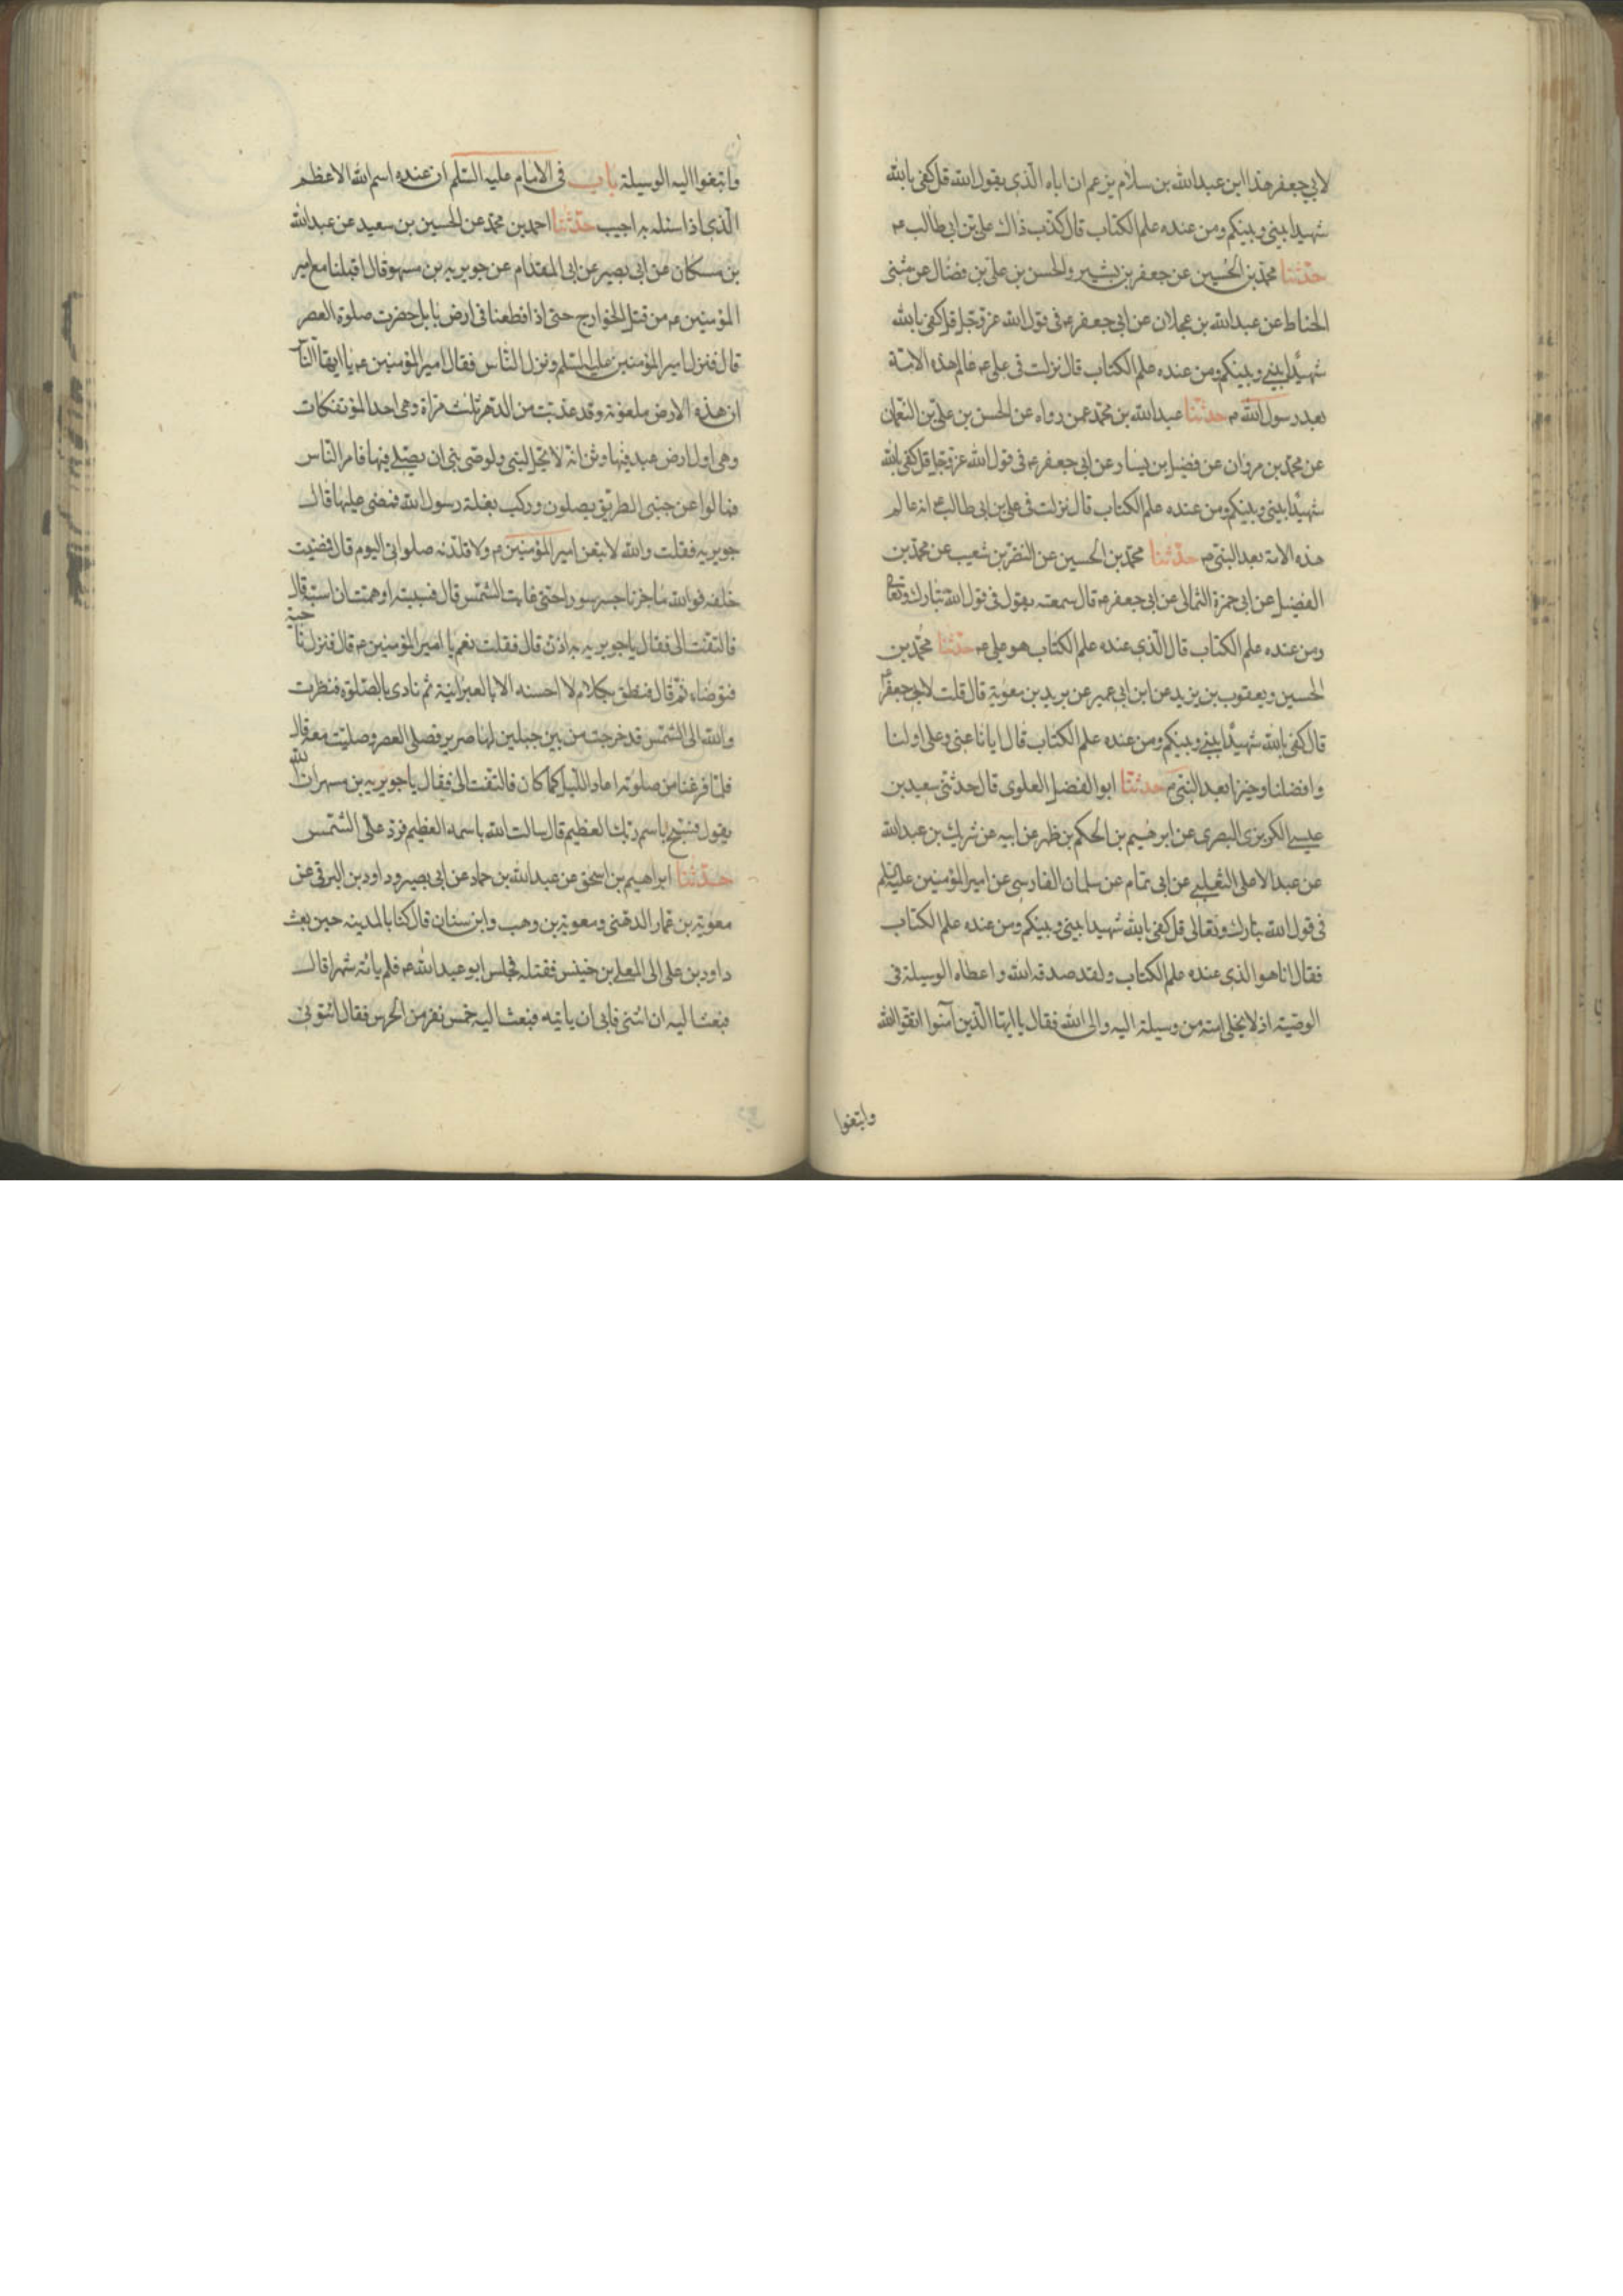 لابي جعفر هذا ابن عبدالله بن سلام يزعم ان اباه الذي يقول الله قل كفى بالله
شهيدا بيني وبينكم ومن عنده علم الكتاب قال كذب ذاك علي بن ابي طالب ع
حدثنا محمد بن الحسين عن جعفر بن بشير والحسن بن علي بن فضال عن مثنى
الحناط عن عبدالله بن عجلان عن ابي جعفر ع في قول الله عز وجل قل كفى بالله
شهيدا بيني وبينكم ومن عنده علم الكتاب قال نزلت في علي ع عالم هذه الامة
بعد رسول الله ص حدثنا عبدالله بن محمد عمن رواه عن الحسن بن علي بن النعمان
عن محمد بن مروان عن فضيل بن يسار عن ابي جعفر ع في قول الله عز وجل قل كفى بالله
شهيدا بيني وبينكم ومن عنده علم الكتاب قال نزلت في علي بن ابي طالب ع انه عالم
هذه الامة بعد النبي ص حدثنا محمد بن الحسين عن النضر بن شعيب عن محمد بن
الفضيل عن ابي حمزة الثمالي عن ابي جعفر ع قال سمعته يقول في قول الله تبارك وتعالى
ومن عنده علم الكتاب قال الذي عنده علم الكتاب هو علي ع حدثنا محمد بن
الحسين ويعقوب بن يزيد عن ابن ابي عمير عن بريد بن معوية قال قلت لابي جعفر ع
قال كفى بالله شهيدا بيني وبينكم ومن عنده علم الكتاب قال ايانا عنى وعلي اولنا
وافضلنا وخيرنا بعد النبي ص حدثنا ابو الفضل العلوي قال حدثني سعيد بن
عيسى الكريزي البصري عن ابرهيم بن الحكم بن ظهر عن ابيه عن شريك بن عبدالله
عن عبد الاعلى الثعلبي عن ابي تمام عن سلمان الفارسي عن امير المؤمنين عليه السلم
في قول الله تبارك وتعالى قل كفى بالله شهيدا بيني وبينكم ومن عنده علم الكتاب
فقال انا هو الذي عنده علم الكتاب ولقد صدقه الله واعطاه الوسيلة في
الوصية اذ لا يخلى امته من وسيلة اليه والى الله فقال يا ايها الذين آمنوا اتقوا الله
وابتغوا
وابتغوا اليه الوسيلة باب في الامام عليه السلم ان عنده اسم الله الاعظم
الذي اذا سئله به اجيب حدثنا احمد بن محمد عن الحسين بن سعيد عن عبدالله
بن مسكان عن ابي بصير عن ابي المقدام عن جويريه بن مسهر قال اقبلنا مع امير
المؤمنين ع من قتل الخوارج حتى اذا قطعنا في ارض بابل حضرت صلوة العصر
قال فنزل امير المؤمنين عليه السلم ونزل الناس فقال امير المؤمنين ع يا ايها الناس
ان هذه الارض ملعونة وقد عذبت من الدهر ثلث مراة وهي احد المؤتفكات
وهي اول ارض عبد فيها وثن انه لا يحل لنبي ولوصي نبي ان يصلي فيها فامر الناس
فمالوا عن جنبي الطريق يصلون وركب بغلة رسول الله فمضى عليها قال
جويريه فقلت والله لاتبعن امير المؤمنين ع ولاقلدنه صلواتي اليوم قال فمضيت
خلفه فوالله ما جزنا جسر سورا حتى غابت الشمس قال فسببته او هممت ان اسبه قال
فالتفت الي فقال يا جويريه اذن قال فقلت نعم يا امير المؤمنين ع قال فنزل ناحية
فتوضاء ثم قال فنطق بكلام لا احسنه الا بالعبرانية ثم نادى بالصلوة فنظرت
والله الى الشمس قد خرجت من بين جبلين لها صرير فصلى العصر وصليت معه قال
فلما فرغنا من صلوته اعاد الليل كما كان فالتفت الي فقال يا جويريه بن مسهر ان الله
يقول فسبح باسم ربك العظيم قال سالت الله باسمه العظيم فرد علي الشمس
حدثنا ابراهيم بن اسحق عن عبدالله بن حماد عن ابي بصير وداود بن البرقي عن
معوية بن عمار الدهني ومعوية بن وهب وابن سنان قال كنا بالمدينه حين بعث
داود بن علي الى المعلى بن خنيس فقتله فجلس ابو عبدالله ع فلم ياته شهرا قال
فبعث اليه ان ائتني فابى ان ياتيه فبعث اليه خمس نفر من الحرس فقال ائتوني